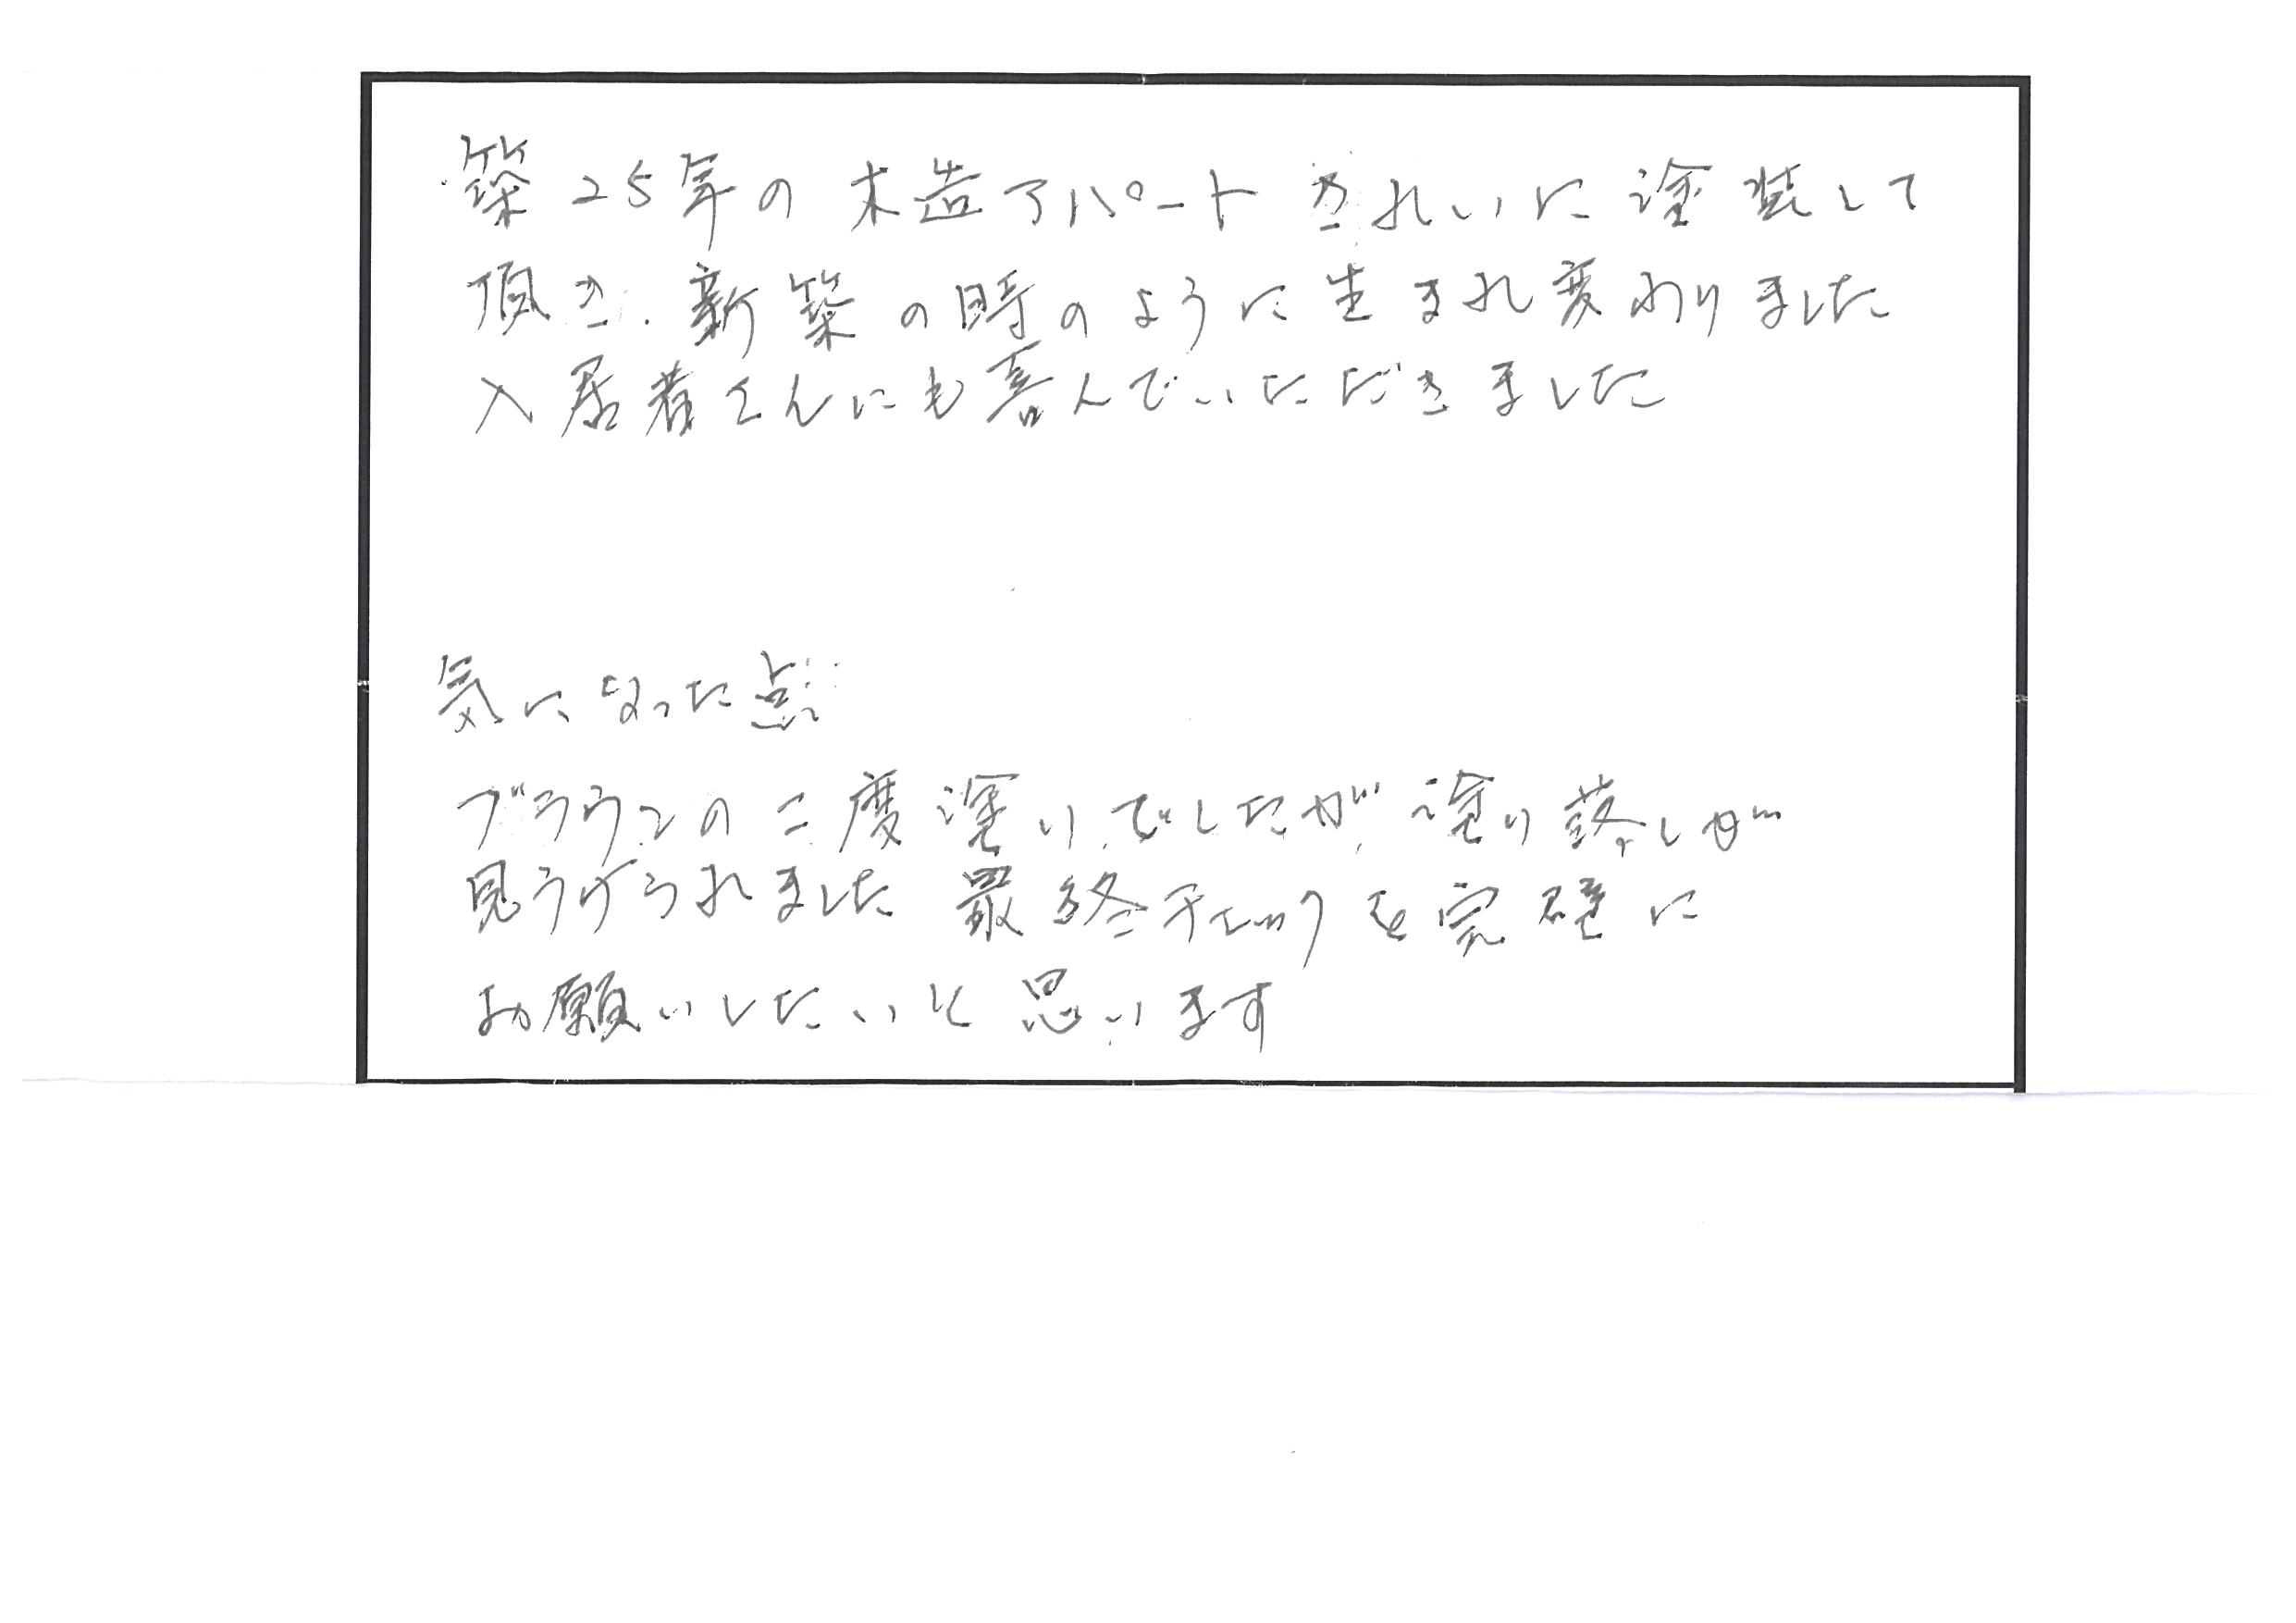 築25年の木造アパートきれいに塗装して
頂き.新築の時のように生まれ変わりました
入居者さんにも喜んでいただきました
気になった点
ブラウンの二度塗りでしたが塗り落しが
見うけられました 最終チェックを完璧に
お願いしたいと思います